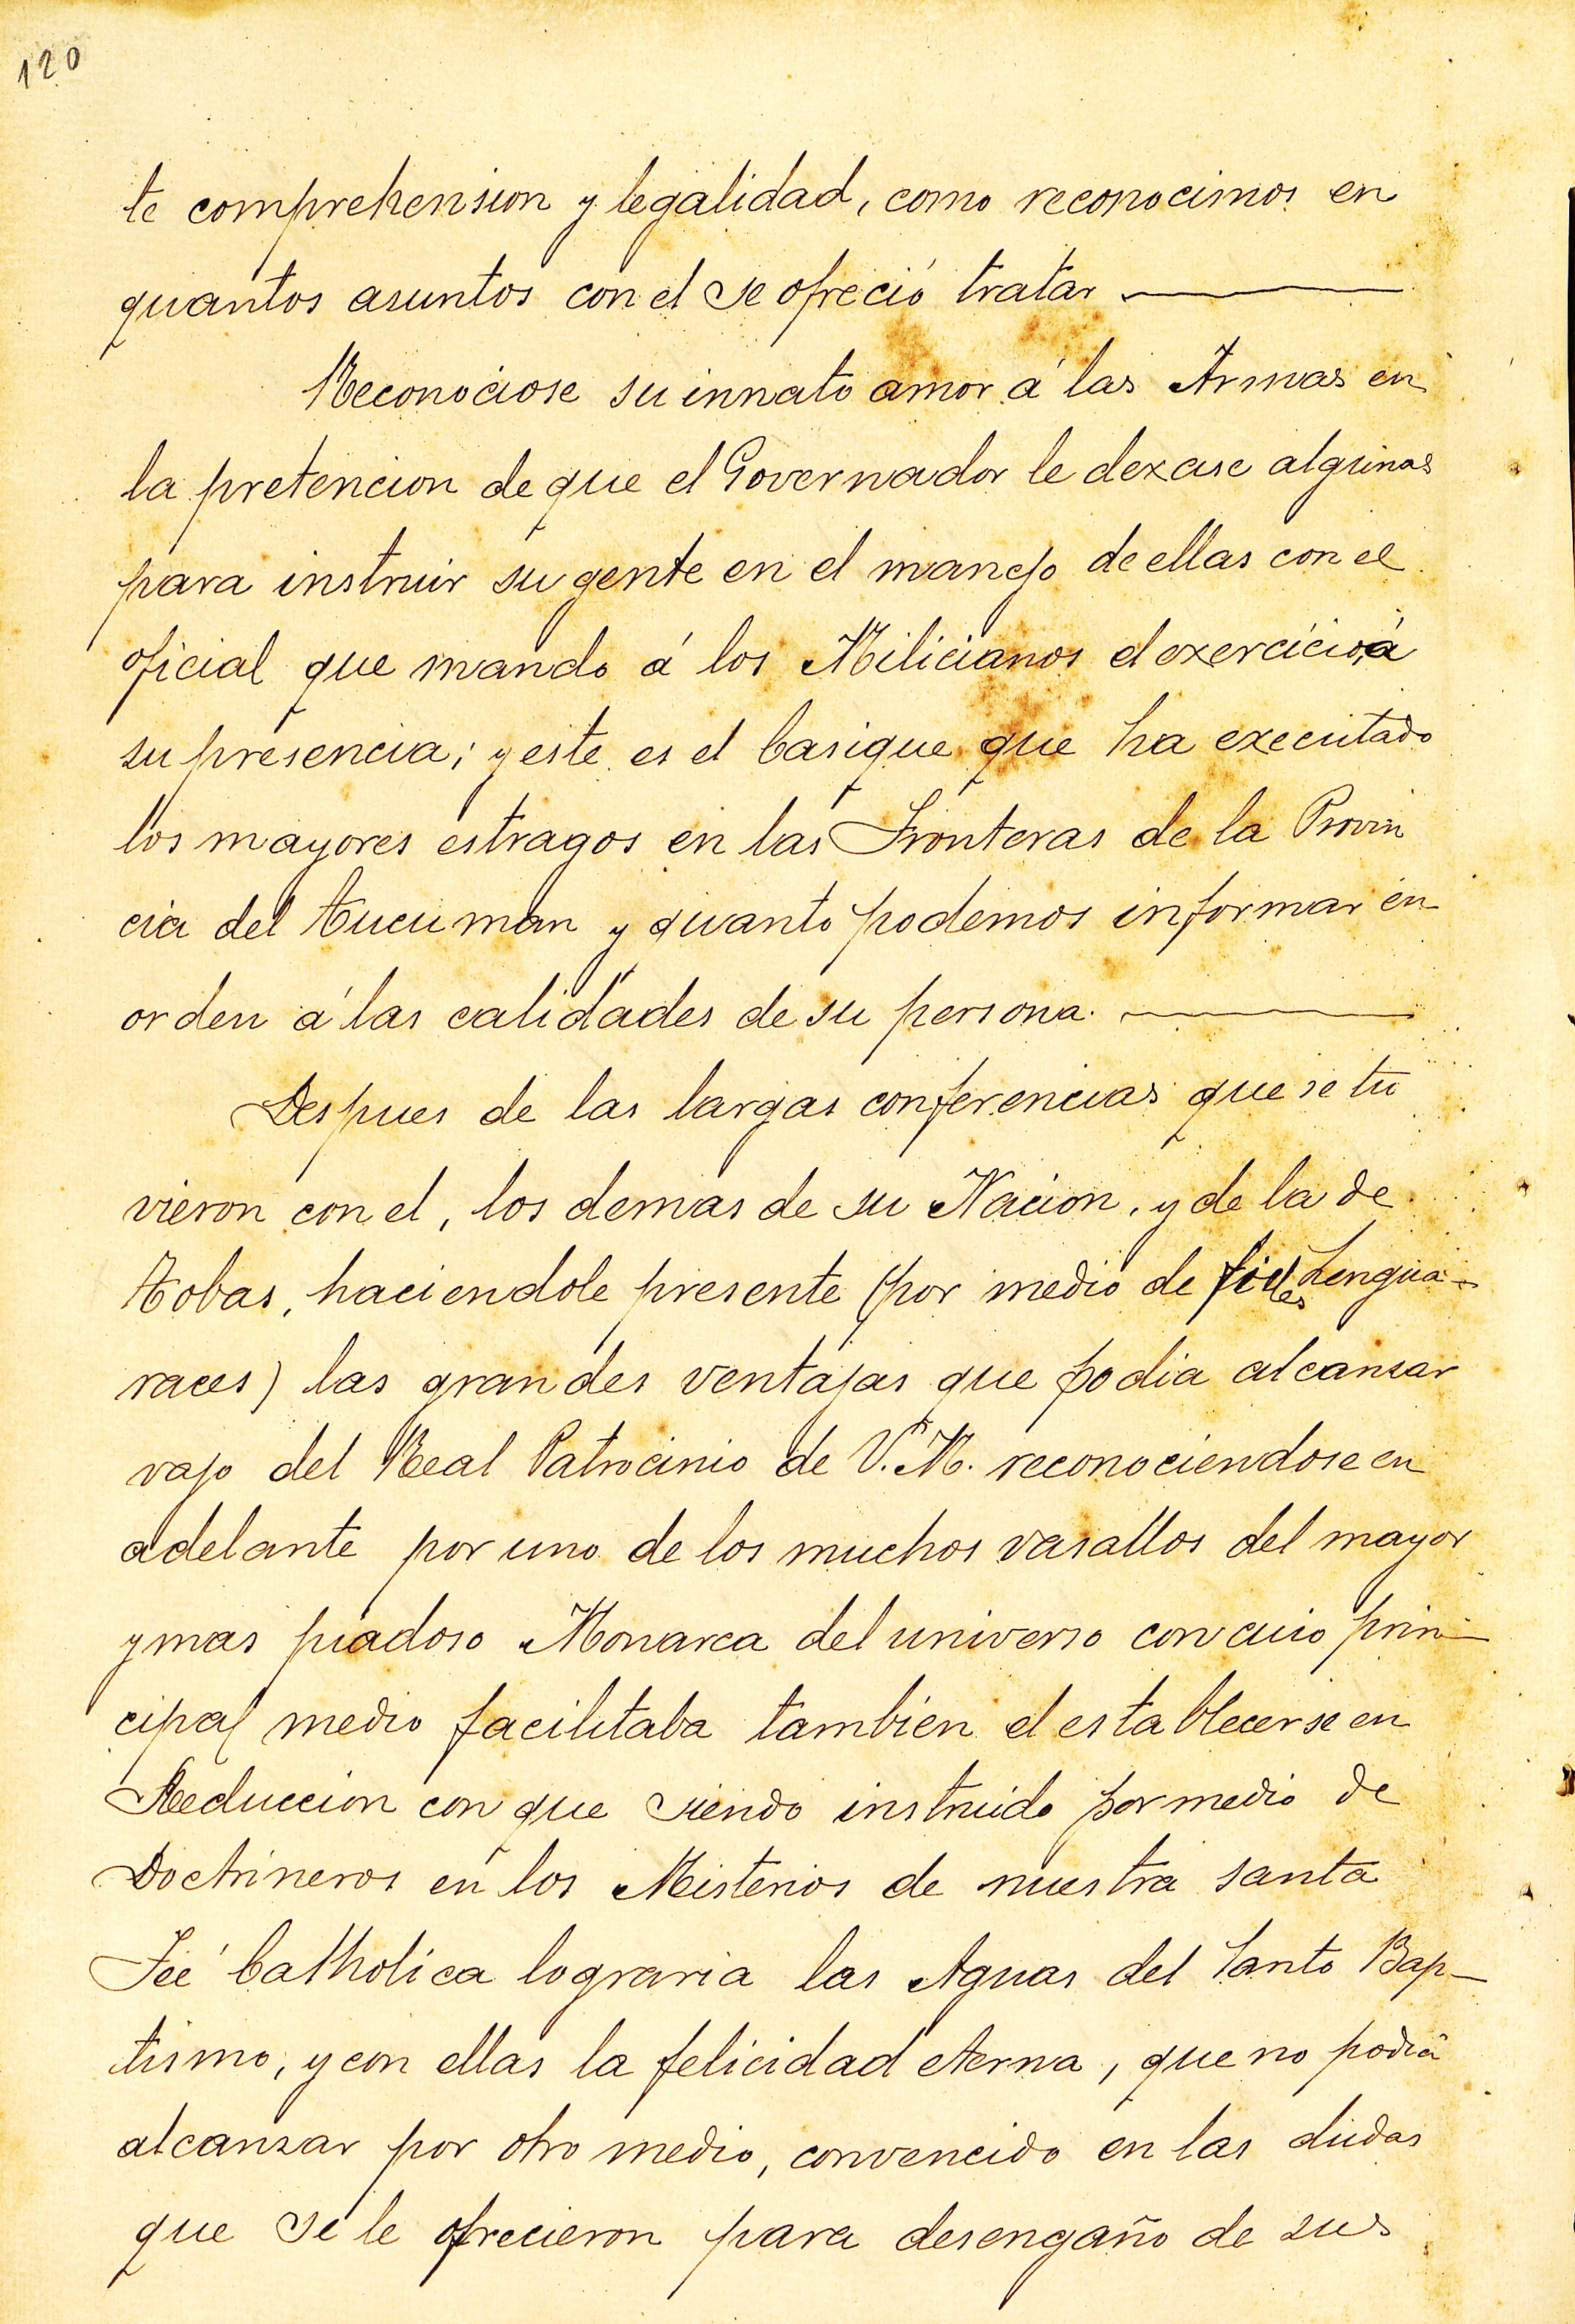 120
te comprehension y legalidad, como reconocimos en
quantos asuntos con el se ofreció tratar
Reconociose su innato amor á las Armas en
la pretencion de que el Governador le dexase algunas
para instruir su gente en el manejo de ellas con el
oficial que mando á los Milicianos el exercicio, á
su presencia; y este es el Casique que ha executado
los mayores estragos en las Fronteras de la Provin
cia del Tucuman y quanto podemos informar en
orden á las calidades de su persona.
Despues de las largas conferencias que se tu
vieron con el, los demas de su Nacion, y de la de
Tobas, haciendole presente (por medio de fieles Lengua-
races) las grandes ventajas que podia alcansar
vajo del Real Patrocinio de V. M. reconociendose en
adelante por uno de los muchos vasallos del mayor
y mas piadoso Monarca del universo con cuio prin-
cipal medio facilitaba tambien el establecerse en
Reduccion con que siendo instruido por medio de
Doctrineros en los Misterios de nuestra santa
Feé Catholica lograria las Aguas del Santo Bap-
tismo, y con ellas la felicidad eterna, que no podia
alcansar por otro medio, convencido en las dudas
que se le ofrecieron para desengaño de sus